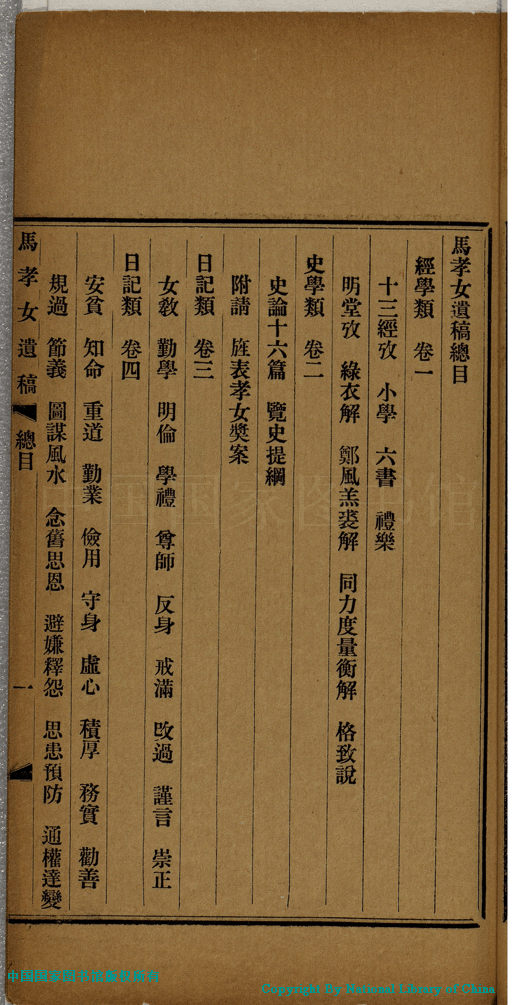 馬孝女遺稿總目
經學類 卷一
十三經攷 小學 六書 禮樂
明堂攷 綠衣解 鄭風羔裘解 同力度量衡解 格致說
史學類 卷二
史論十六篇 覽史提綱
附請 旌表孝女獎案
日記類 卷三
女敎 勤學 明倫 學禮 尊師 反身 戒滿 改過 謹言 崇正
日記類 卷四
安貧 知命 重道 勤業 儉用 守身 虛心 積厚 務實 勸善
規過 節義 圖謀風水 念舊思恩 避嫌釋怨 思患預防 通權達變
馬孝女遺稿 總目 一
中国国家图书馆
中国国家图书馆版权所有
Copyright By National Library of China